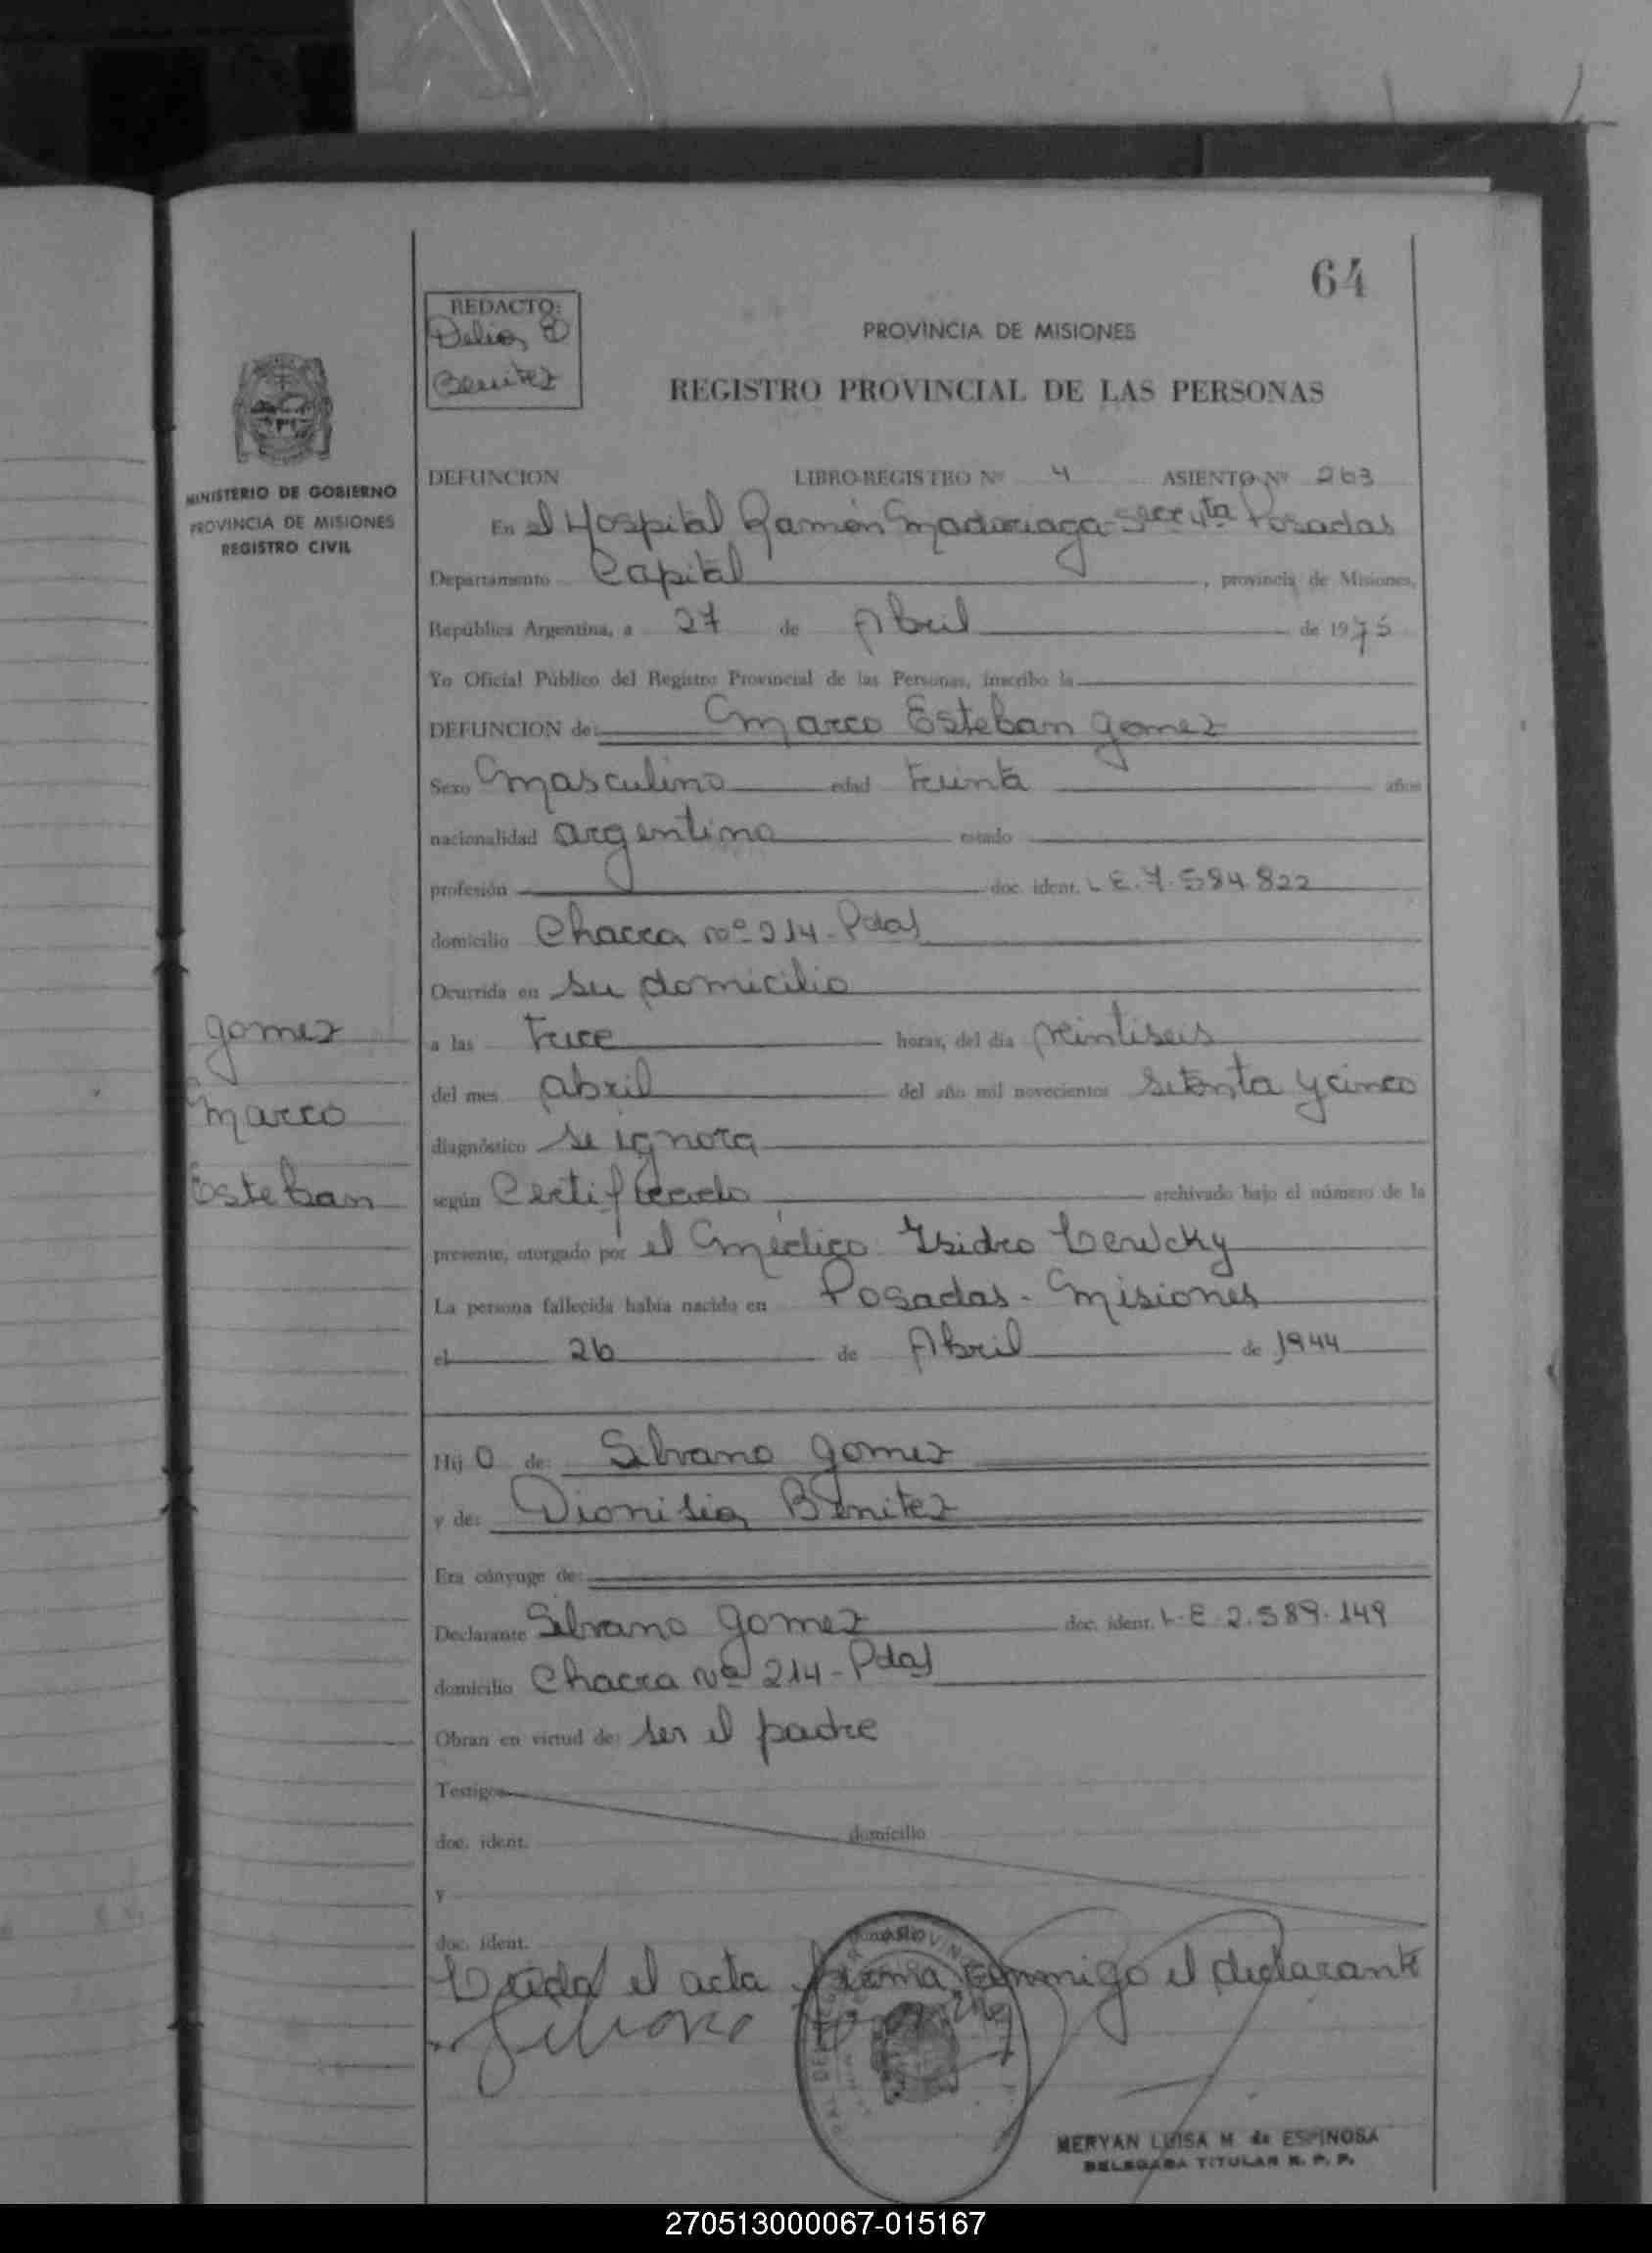 64
REDACTO:
Delia E
Benitez
PROVINCIA DE MISIONES
REGISTRO PROVINCIAL DE LAS PERSONAS
MINISTERIO DE GOBIERNO
PROVINCIA DE MISIONES
REGISTRO CIVIL
DEFUNCION LIBRO-REGISTRO Nº 4 ASIENTO Nº 263
En el Hospital Ramón Madariaga - Secc 4ta Posadas
Departamento Capital, provincia de Misiones,
República Argentina, a 27 de Abril de 1975
Yo Oficial Público del Registro Provincial de las Personas, inscribo la
DEFUNCION de: Marco Esteban Gomez
Sexo Masculino edad treinta años
nacionalidad argentina estado
profesión doc. ident. L E. 7.584.822
domicilio Chacra nº 214 - Pdas
Ocurrida en su domicilio
a las trece horas, del día veintiseis
del mes abril del año mil novecientos setenta y cinco
diagnóstico se ignora
según Certificado archivado bajo el número de la
presente, otorgado por el Médico Isidro
La persona fallecida había nacido en Posadas - Misiones
el 26 de Abril de 1944
Gomez
Marco
Esteban
Hij o de: Silvano Gomez
y de: Dionisia Benitez
Era cónyuge de:
Declarante Silvano Gomez doc. ident. L.E. 2.589.149
domicilio Chacra Nº 214 - Pdas
Obran en virtud de: ser el padre
Testigos
doc. ident. domicilio
y
doc. ident. domicilio
Leida el acta firma conmigo el declarante
Silvano Gomez
MERYAN LUISA M. de ESPINOSA
DELEGADA TITULAR R. P. P.
270513000067-015167